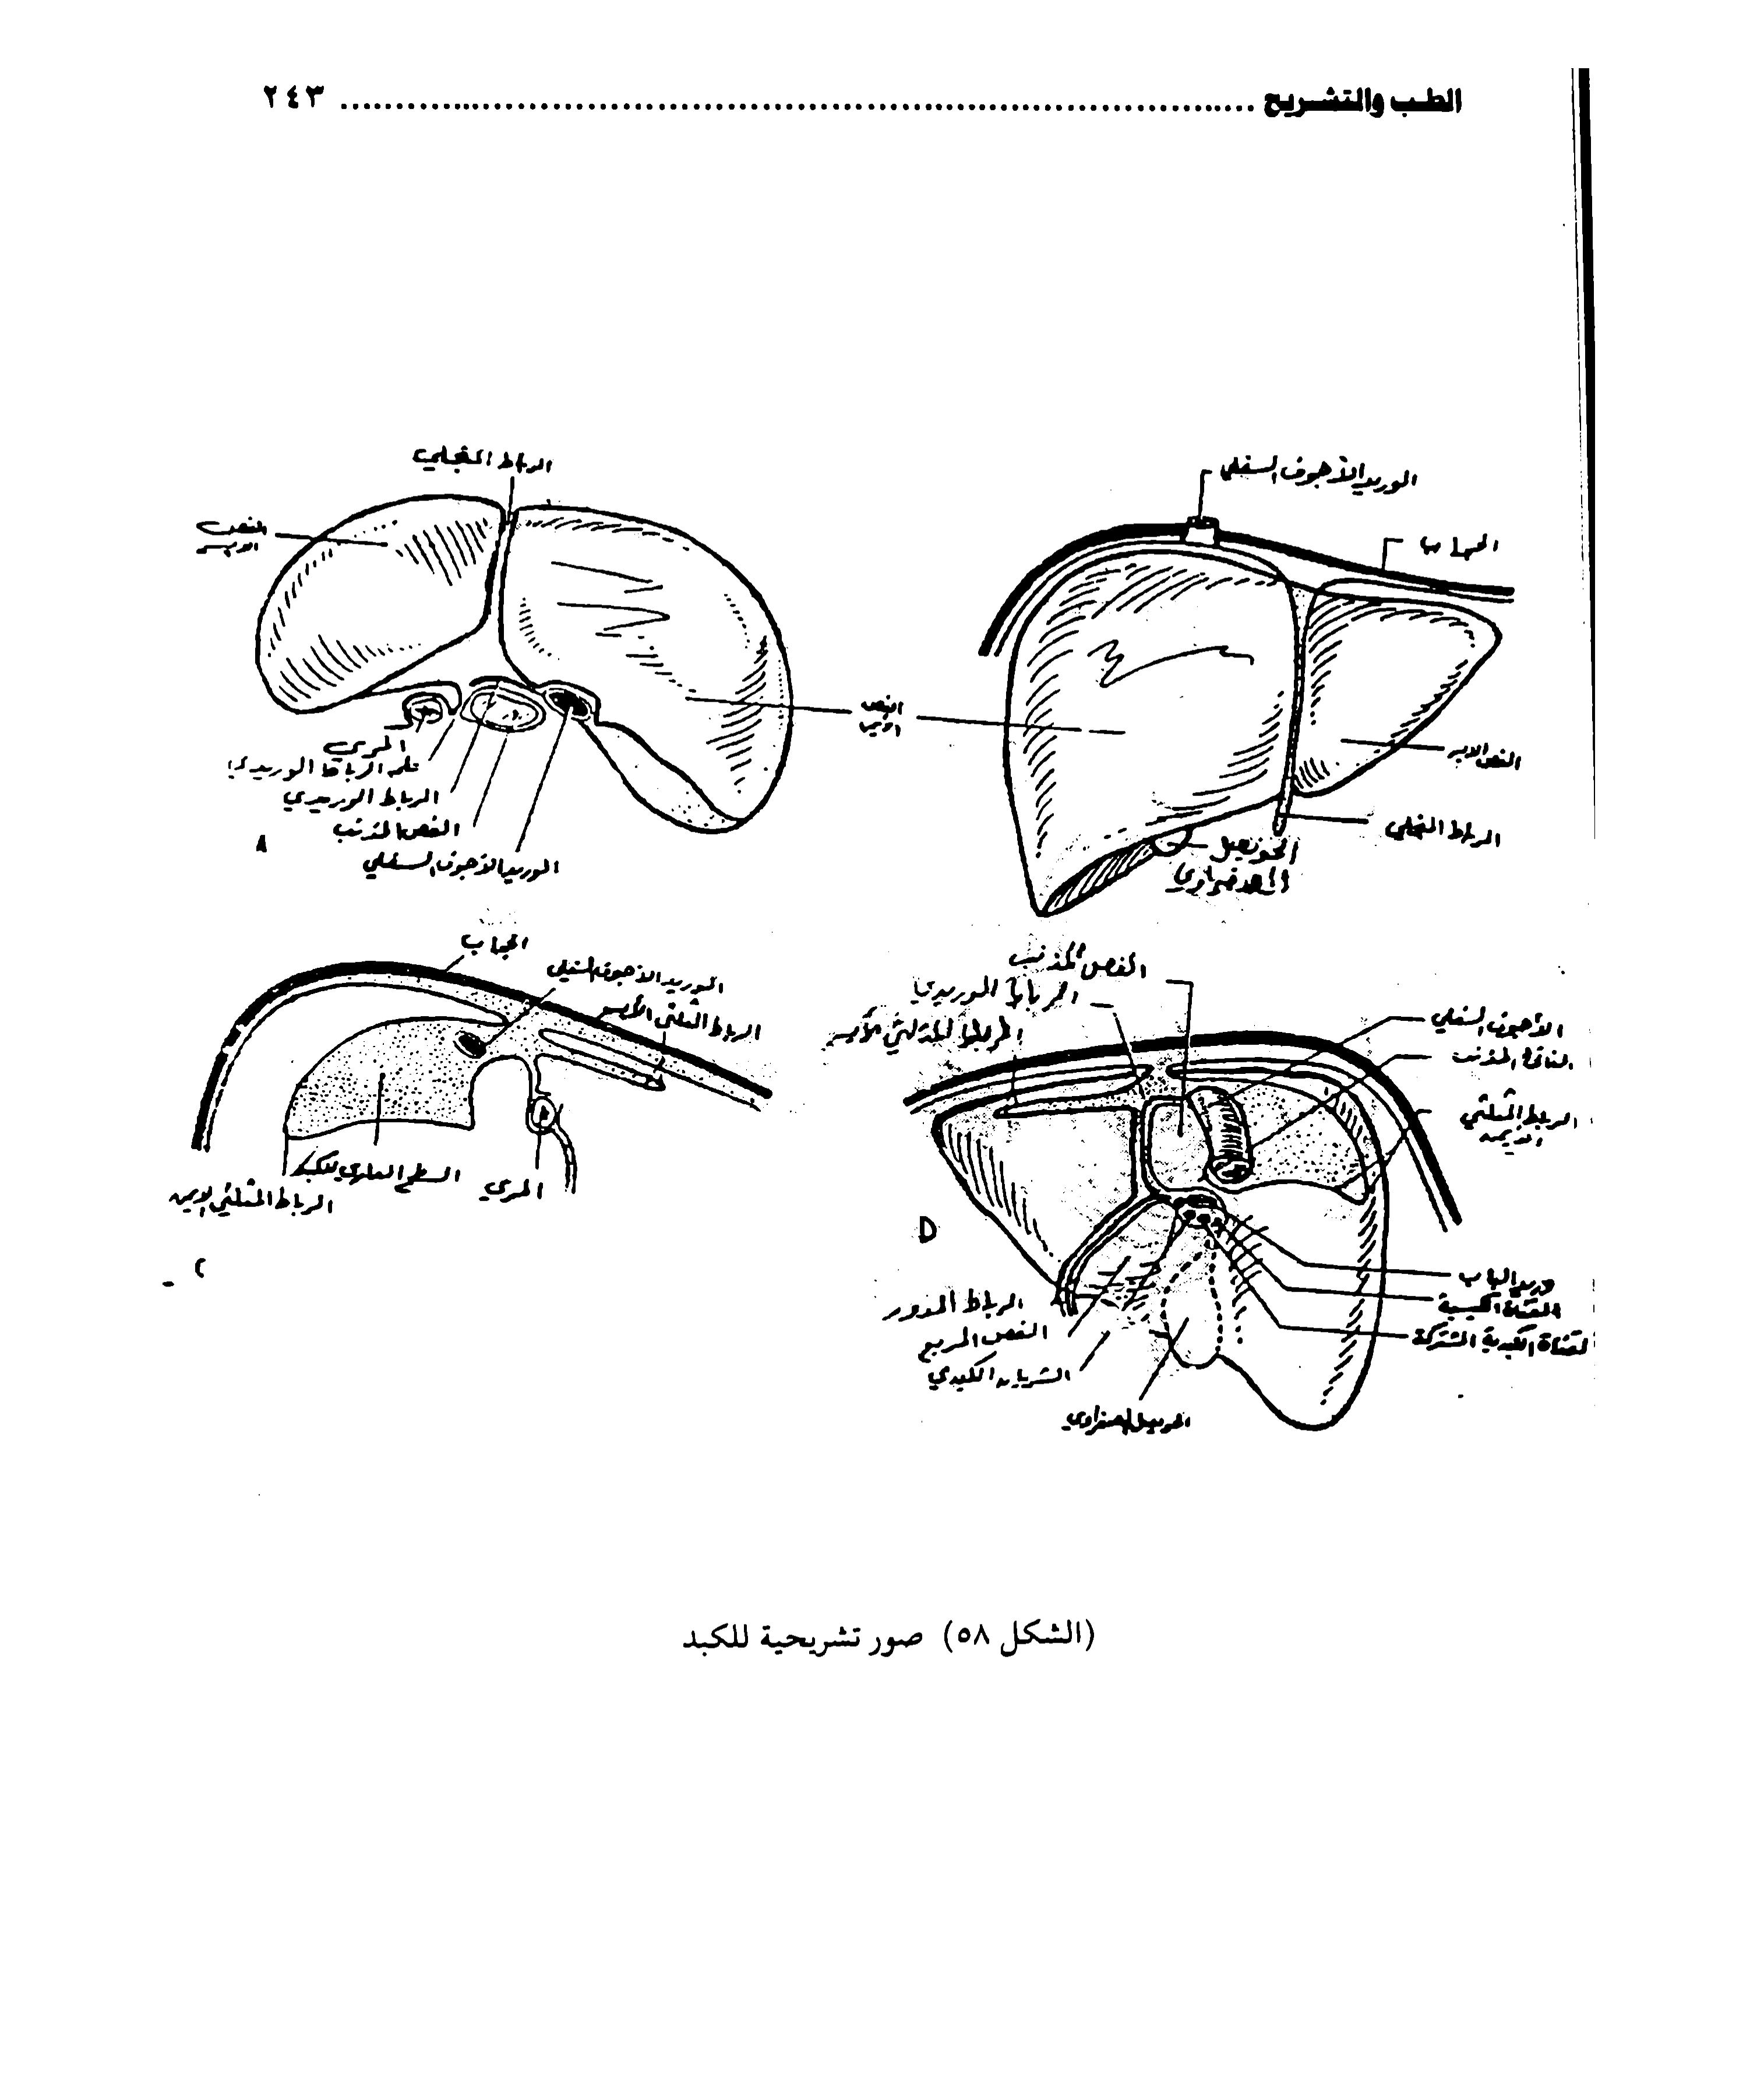 الطب والتشريح ........................ ٢٤٣
الرباط المنجلي
الفص
الايسر
المري
ثلمة الرباط الوريدي
الرباط الوريدي
الفص المذنب
الوريد الأجوف السفلي
A
الوريد الأجوف السفلي
الحجاب
الفص
الايمن
الفص الايسر
الرباط المنجلي
الحويصل
الصفراوي
الحجاب
الوريد الأجوف السفلي
الرباط المثلثي الأيسر
السطح العلوي للكبد
المري
الرباط المثلثي الايمن
C
الفص المذنب
الرباط الوريدي
الرباط المثلثي الأيسر
الأجوف السفلي
الرباط المثلثي
الايمن
D
وريد الباب
القناة الكيسية
القناة الكبدية المشتركة
الرباط المدور
الفص المربع
الشريان الكبدي
الحويصل الصفراوي
(الشكل ٥٨) صور تشريحية للكبد